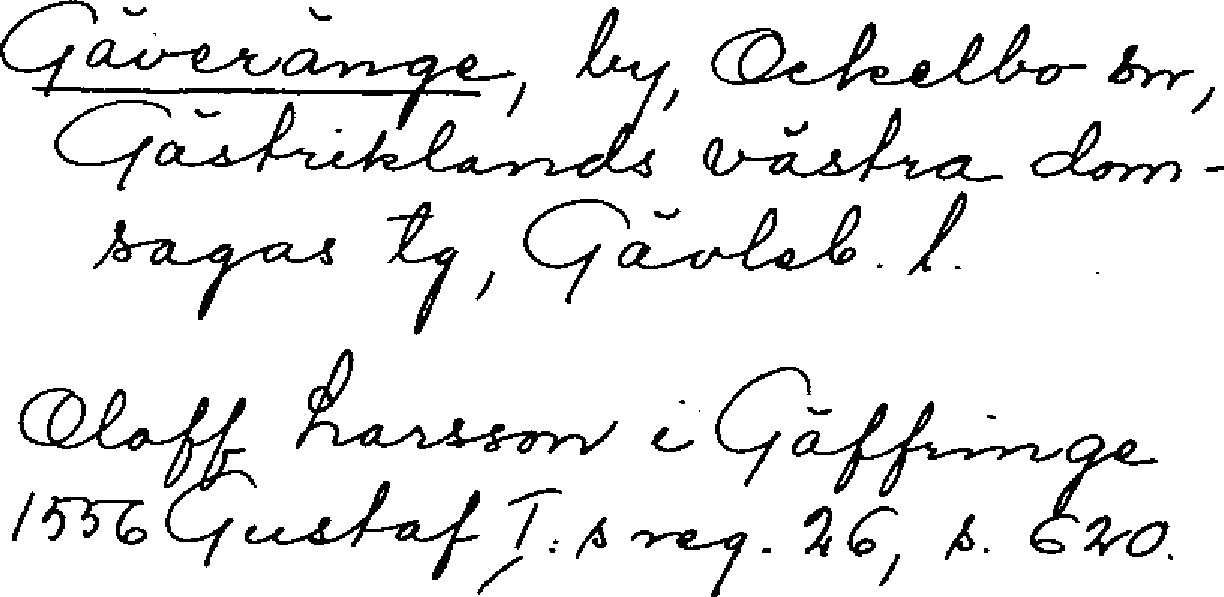 Gäveränge, by, Ockelbo sn,
Gästriklands västra dom-
sagas tg, Gävleb. l.
Oloff Larsson i Gäffringe
1556 Gustaf I:s reg. 26, s. 620.